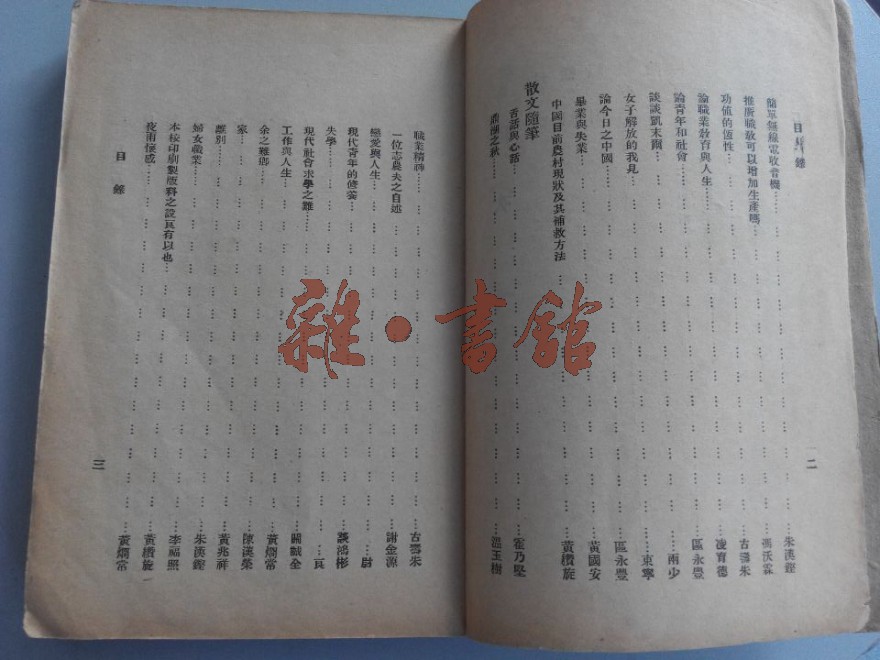 目錄
二
簡單無線電收音機……朱漢鏗
推廣職教可以增加生產嗎……馮沃霖
功值的恆性……古雲朱
論職業教育與人生……凌育德
論青年和社會……區永豐
談談凱末爾……雨少
女子解放的我見……東寧
論今日之中國……區永豐
畢業與失業……黃國安
中國目前農村現狀及其補救方法……黃積旋
散文隨筆
舌話與心話……霍乃堅
之秋……溫玉樹
職業精神……古雲朱
一位志農夫之自述……謝金源
戀愛與人生……尉
現代青年的修養……談鴻彬
失學……一瓦
現代社會求學之難……關毓全
工作與人生……黃炯常
余之鄉……陳漢榮
家……黃兆祥
離別……朱漢鏗
婦女職業……李福照
本校印刷製版科之設良有以也……黃積旋
夜雨感……黃炯常
目錄
三
雜·書館